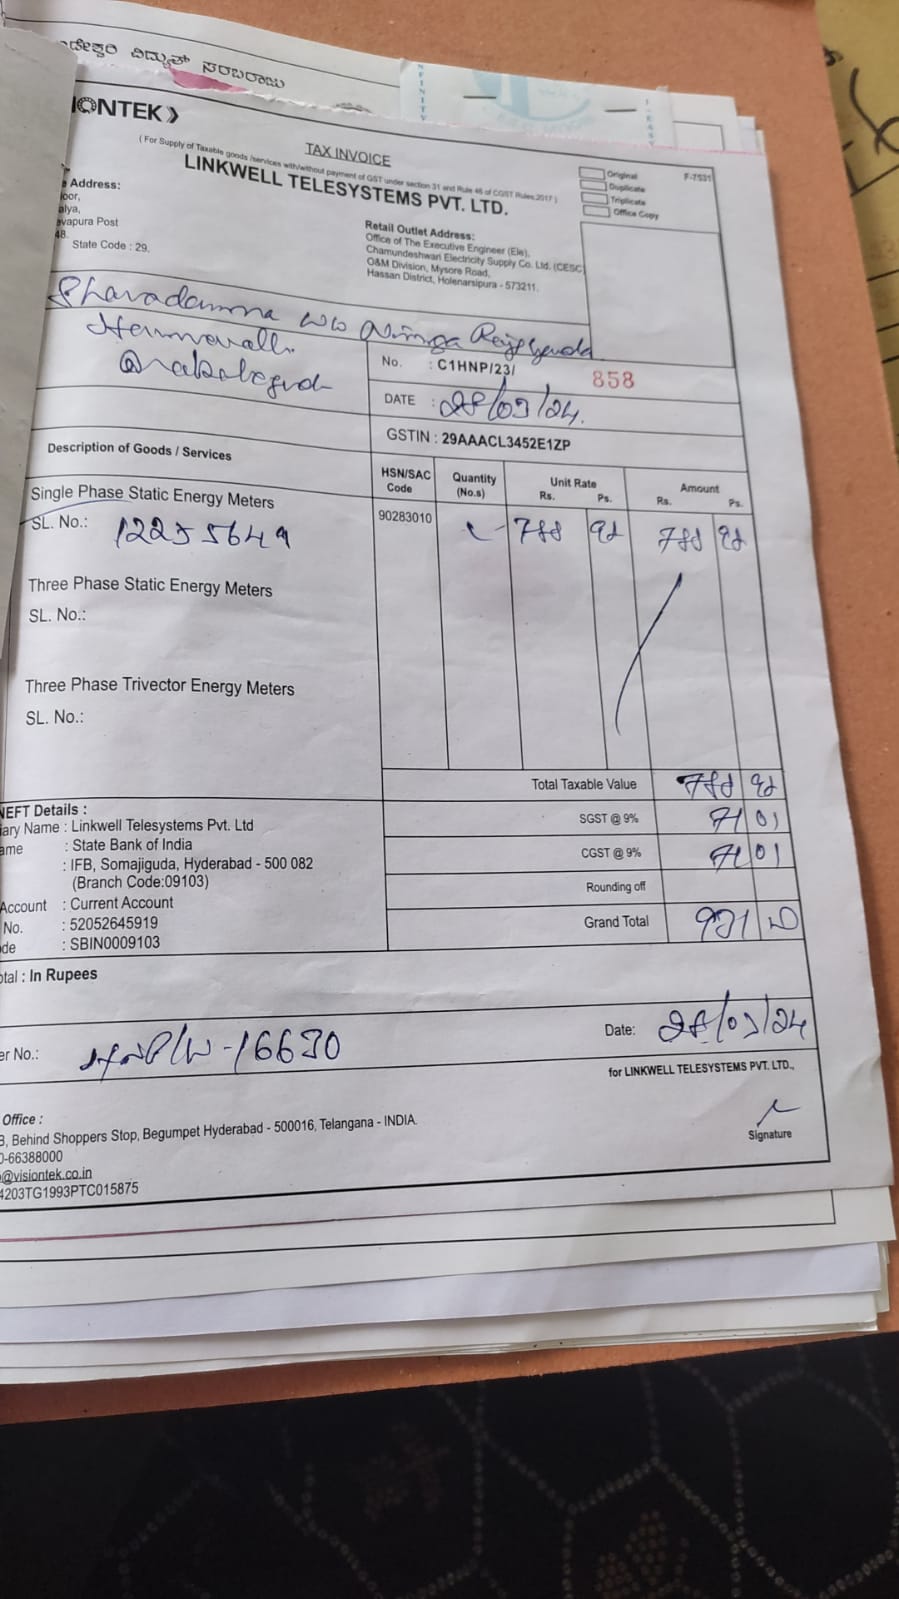 ಡೇಶ್ವರಿ ವಿದ್ಯುತ್ ಸರಬರಾಜು
IONTEK
TAX INVOICE
( For Supply of Taxable goods /services with/without payment of GST under section 31 and Rule 46 of CGST Rules,2017 )
LINKWELL TELESYSTEMS PVT. LTD.
Original
Duplicate
Triplicate
Office Copy
F-7531
Address:
oor,
alya,
avapura Post
48.
State Code : 29.
Retail Outlet Address:
Office of The Executive Engineer (Ele),
Chamundeshwari Electricity Supply Co. Ltd. (CESC
O&M Division, Mysore Road,
Hassan District, Holenarsipura - 573211.
No. : C1HNP/23/ 858
DATE : 28/03/24.
GSTIN : 29AAACL3452E1ZP
Description of Goods / Services
HSN/SAC Code
Quantity (No.s)
Unit Rate Rs. Ps.
Amount Rs. Ps.
Single Phase Static Energy Meters
SL. No.: 12255649
90283010
Three Phase Static Energy Meters
SL. No.:
Three Phase Trivector Energy Meters
SL. No.:
Total Taxable Value
SGST @ 9% 71 01
CGST @ 9% 71 01
Rounding off
Grand Total 931
NEFT Details :
iary Name : Linkwell Telesystems Pvt. Ltd
ame : State Bank of India
: IFB, Somajiguda, Hyderabad - 500 082
(Branch Code:09103)
Account : Current Account
No. : 52052645919
de : SBIN0009103
otal : In Rupees
er No.: 16630
Date: 28/03/24
for LINKWELL TELESYSTEMS PVT. LTD.,
Signature
Office :
3, Behind Shoppers Stop, Begumpet Hyderabad - 500016, Telangana - INDIA.
0-66388000
@visiontek.co.in
4203TG1993PTC015875